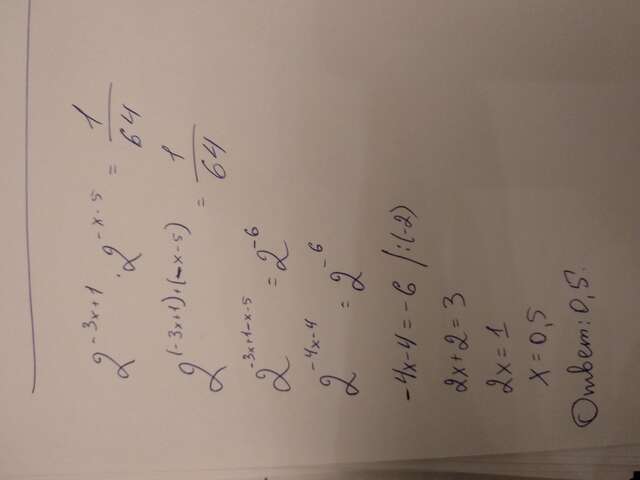 2^{-3x+1} · 2^{-x-5} = \frac{1}{64}
2^{(-3x+1)+(-x-5)} = \frac{1}{64}
2^{-3x+1-x-5} = 2^{-6}
2^{-4x-4} = 2^{-6}
-4x-4 = -6 /:(-2)
2x+2 = 3
2x = 1
x = 0,5
Ответ: 0,5.